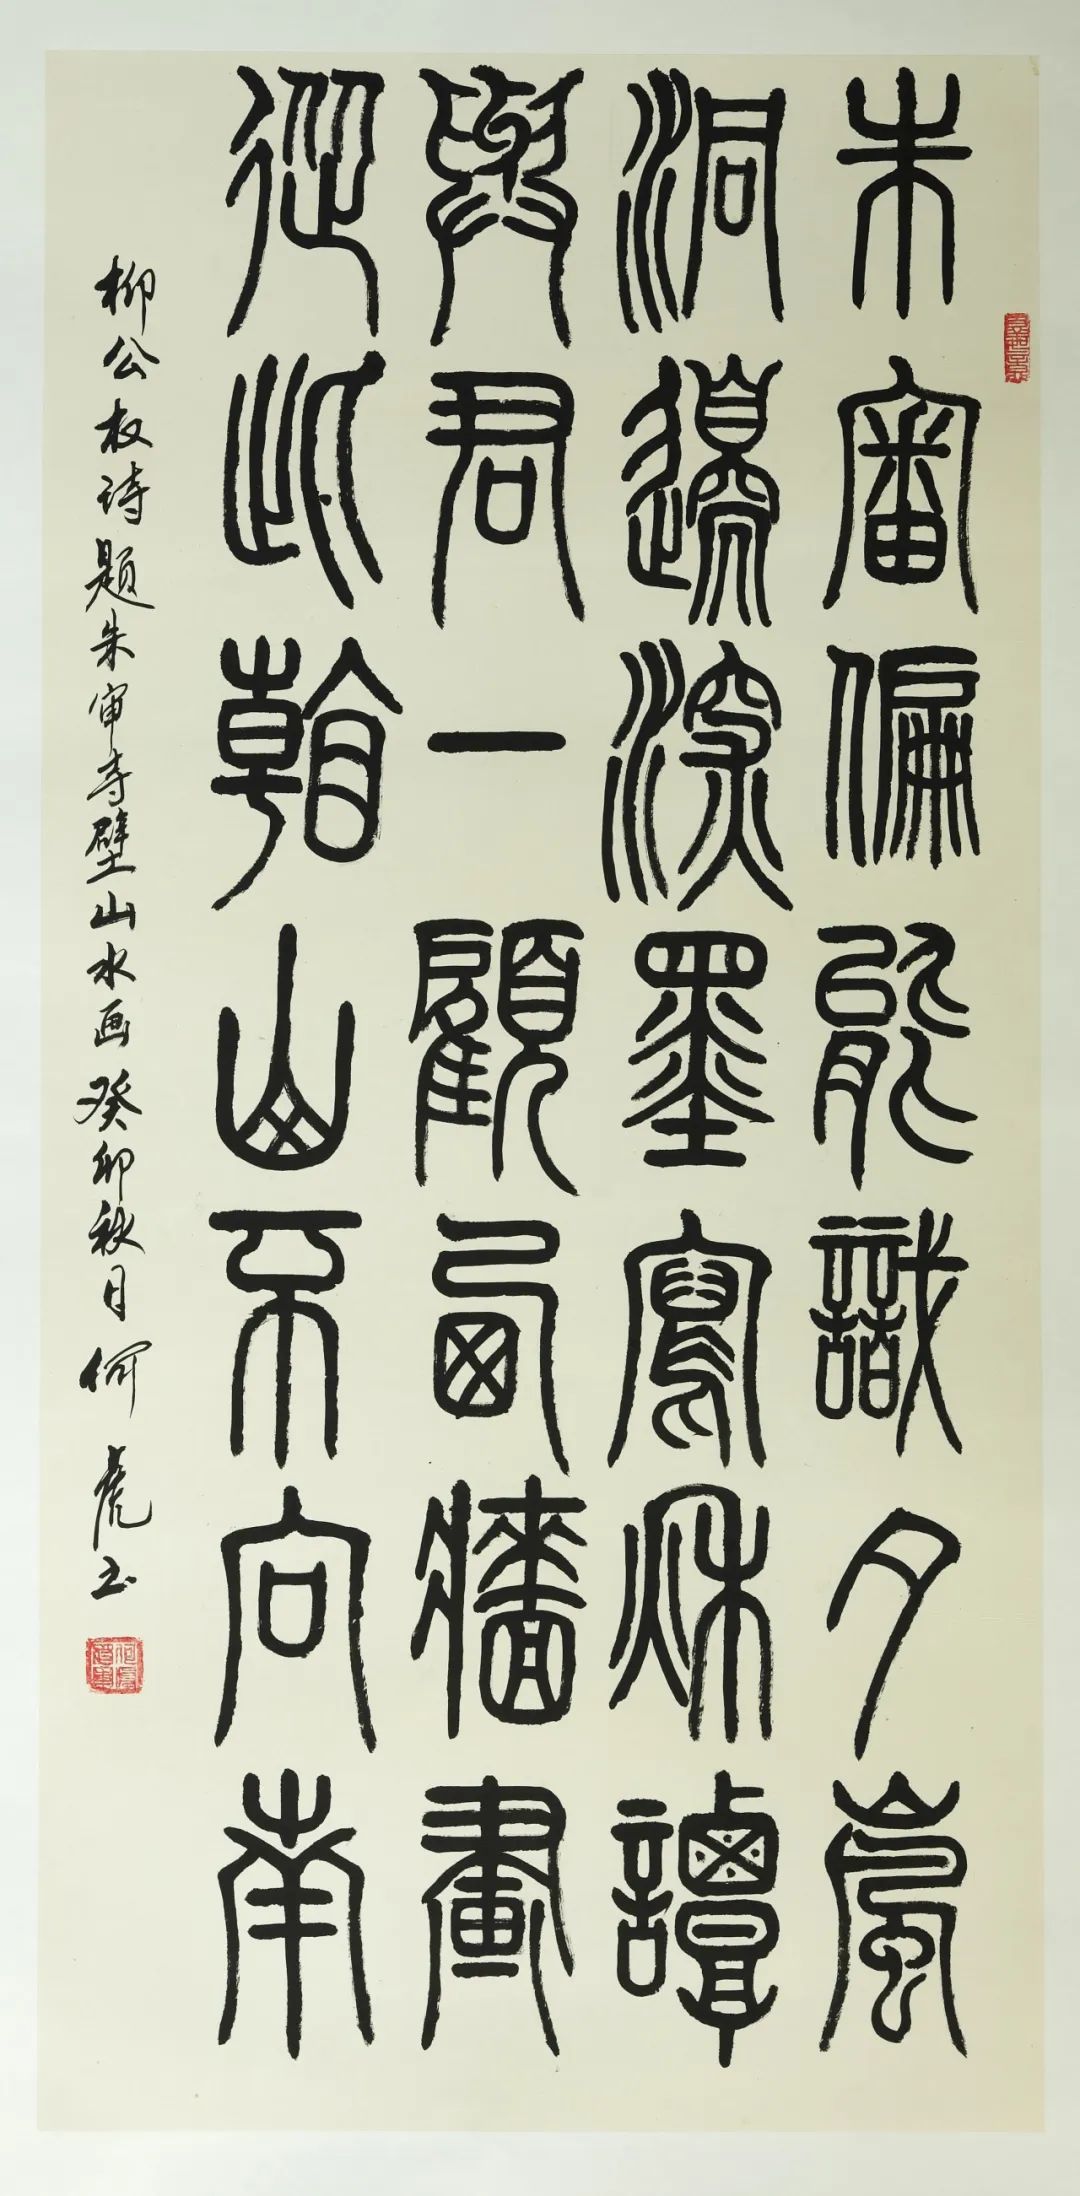 朱審偏能識夕嵐
洞邊深墨寫秋譚
與君一顧西牆畫
從此看山不向南
柳公权诗题朱审寺壁山水画 癸卯秋月 何虎书